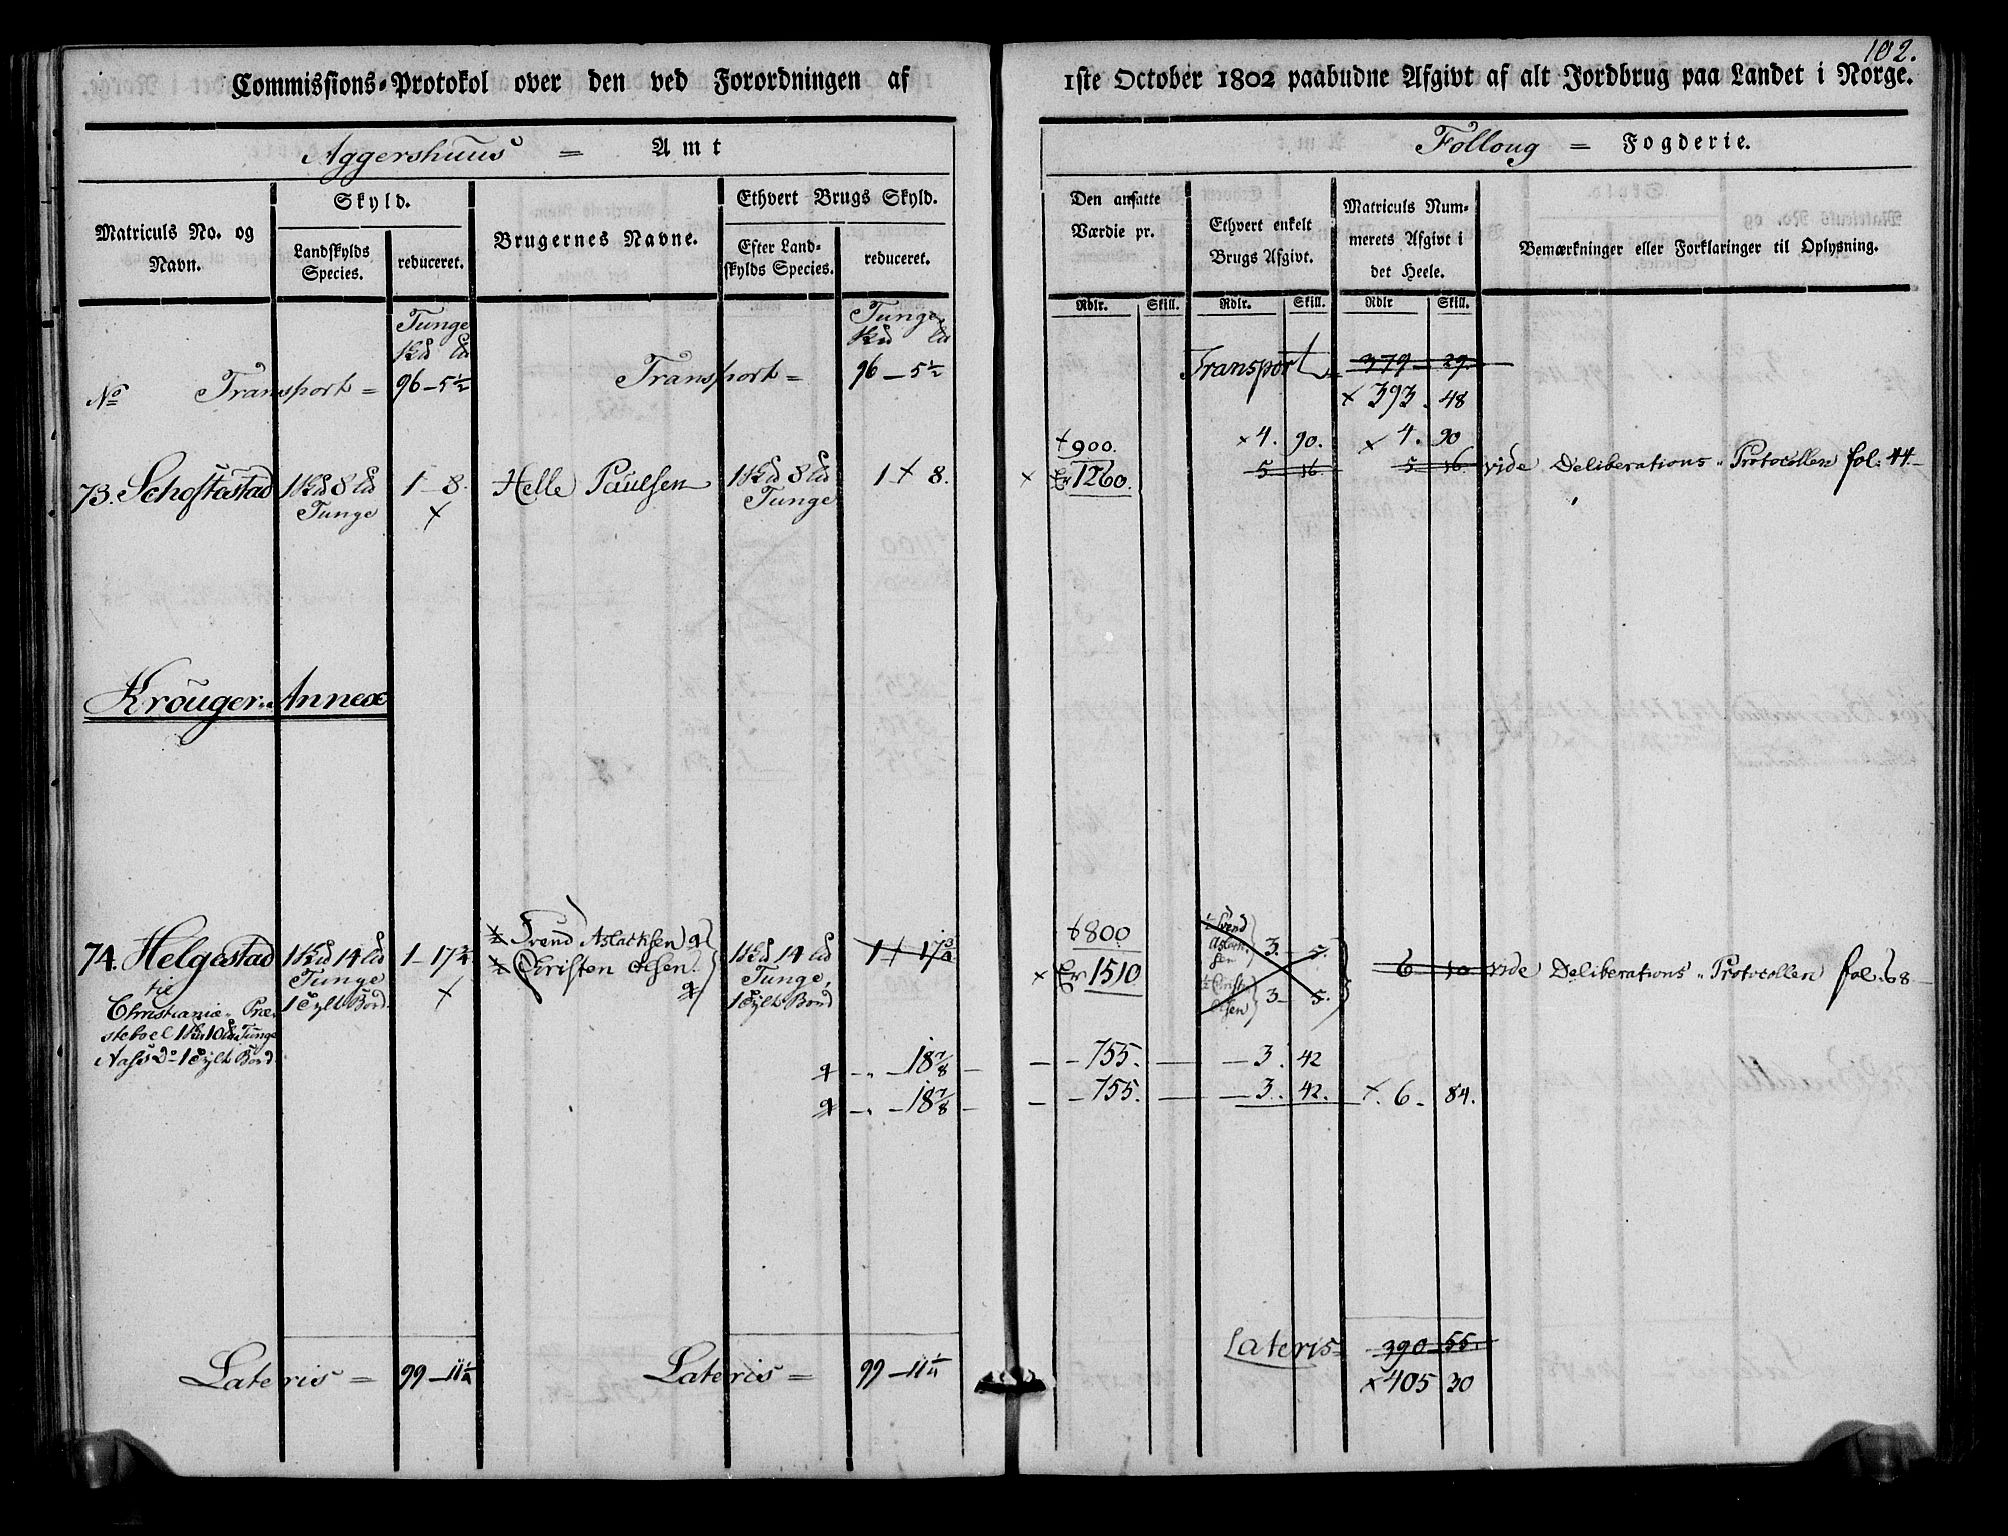 102.
Commissions-Protokol over den ved Forordningen af 1ste October 1802 paabudne Afgivt af alt Jordbrug paa Landet i Norge.
Aggershuus = Amt
Folloug = Fogderie.
Matriculs No. og Navn.
Skyld.
Landskylds Species.
reduceret.
Brugernes Navne.
Ethvert Brugs Skyld.
Efter Landskylds Species.
reduceret.
Den ansatte Værdie pr.
Ethvert enkelt Brugs Afgivt.
Matriculs Nummerets Afgivt i det Heele.
Bemærkninger eller Forklaringer til Oplysning.
Rdlr. Skill. Rdlr. Skill. Rdlr Skill.
Tunge Tunge
No Transport = 96 – 5½ Transport = 96 – 5½ Transport 379 – 29.
× 393. 48
† 900. × 4. 90. × 4. 90
73. Schoftestad 8 1 – 8. Helle Paulsen 8 1 × 8. × Er 1260. 5 16 5 16. vide Deliberations-Protocollen fol. 44
Tunge × Tunge
Krouger-Annex
† 800
½ Svend Aslachsen
74. Helgestad 14 1 – 17¾ ½ Christen Olsen 14 1 † 17¾ × Er 1510 3 – 5. 3 – 5. 6 10 vide Deliberations-Protocollen fol. 68
til Tunge × Tunge,
Christianiæ Præ- 1 Bord 1 Bord
steboel 10 Tunge
Bord
– „ – 18⅞ – – 755. – 3. 42
– „ – 18⅞ – – 755. – 3. 42. × 6 – 84.
Lateris = 99 – 11¼ Lateris = 99 – 11¼ Lateris = 390 – 55.
× 405 30